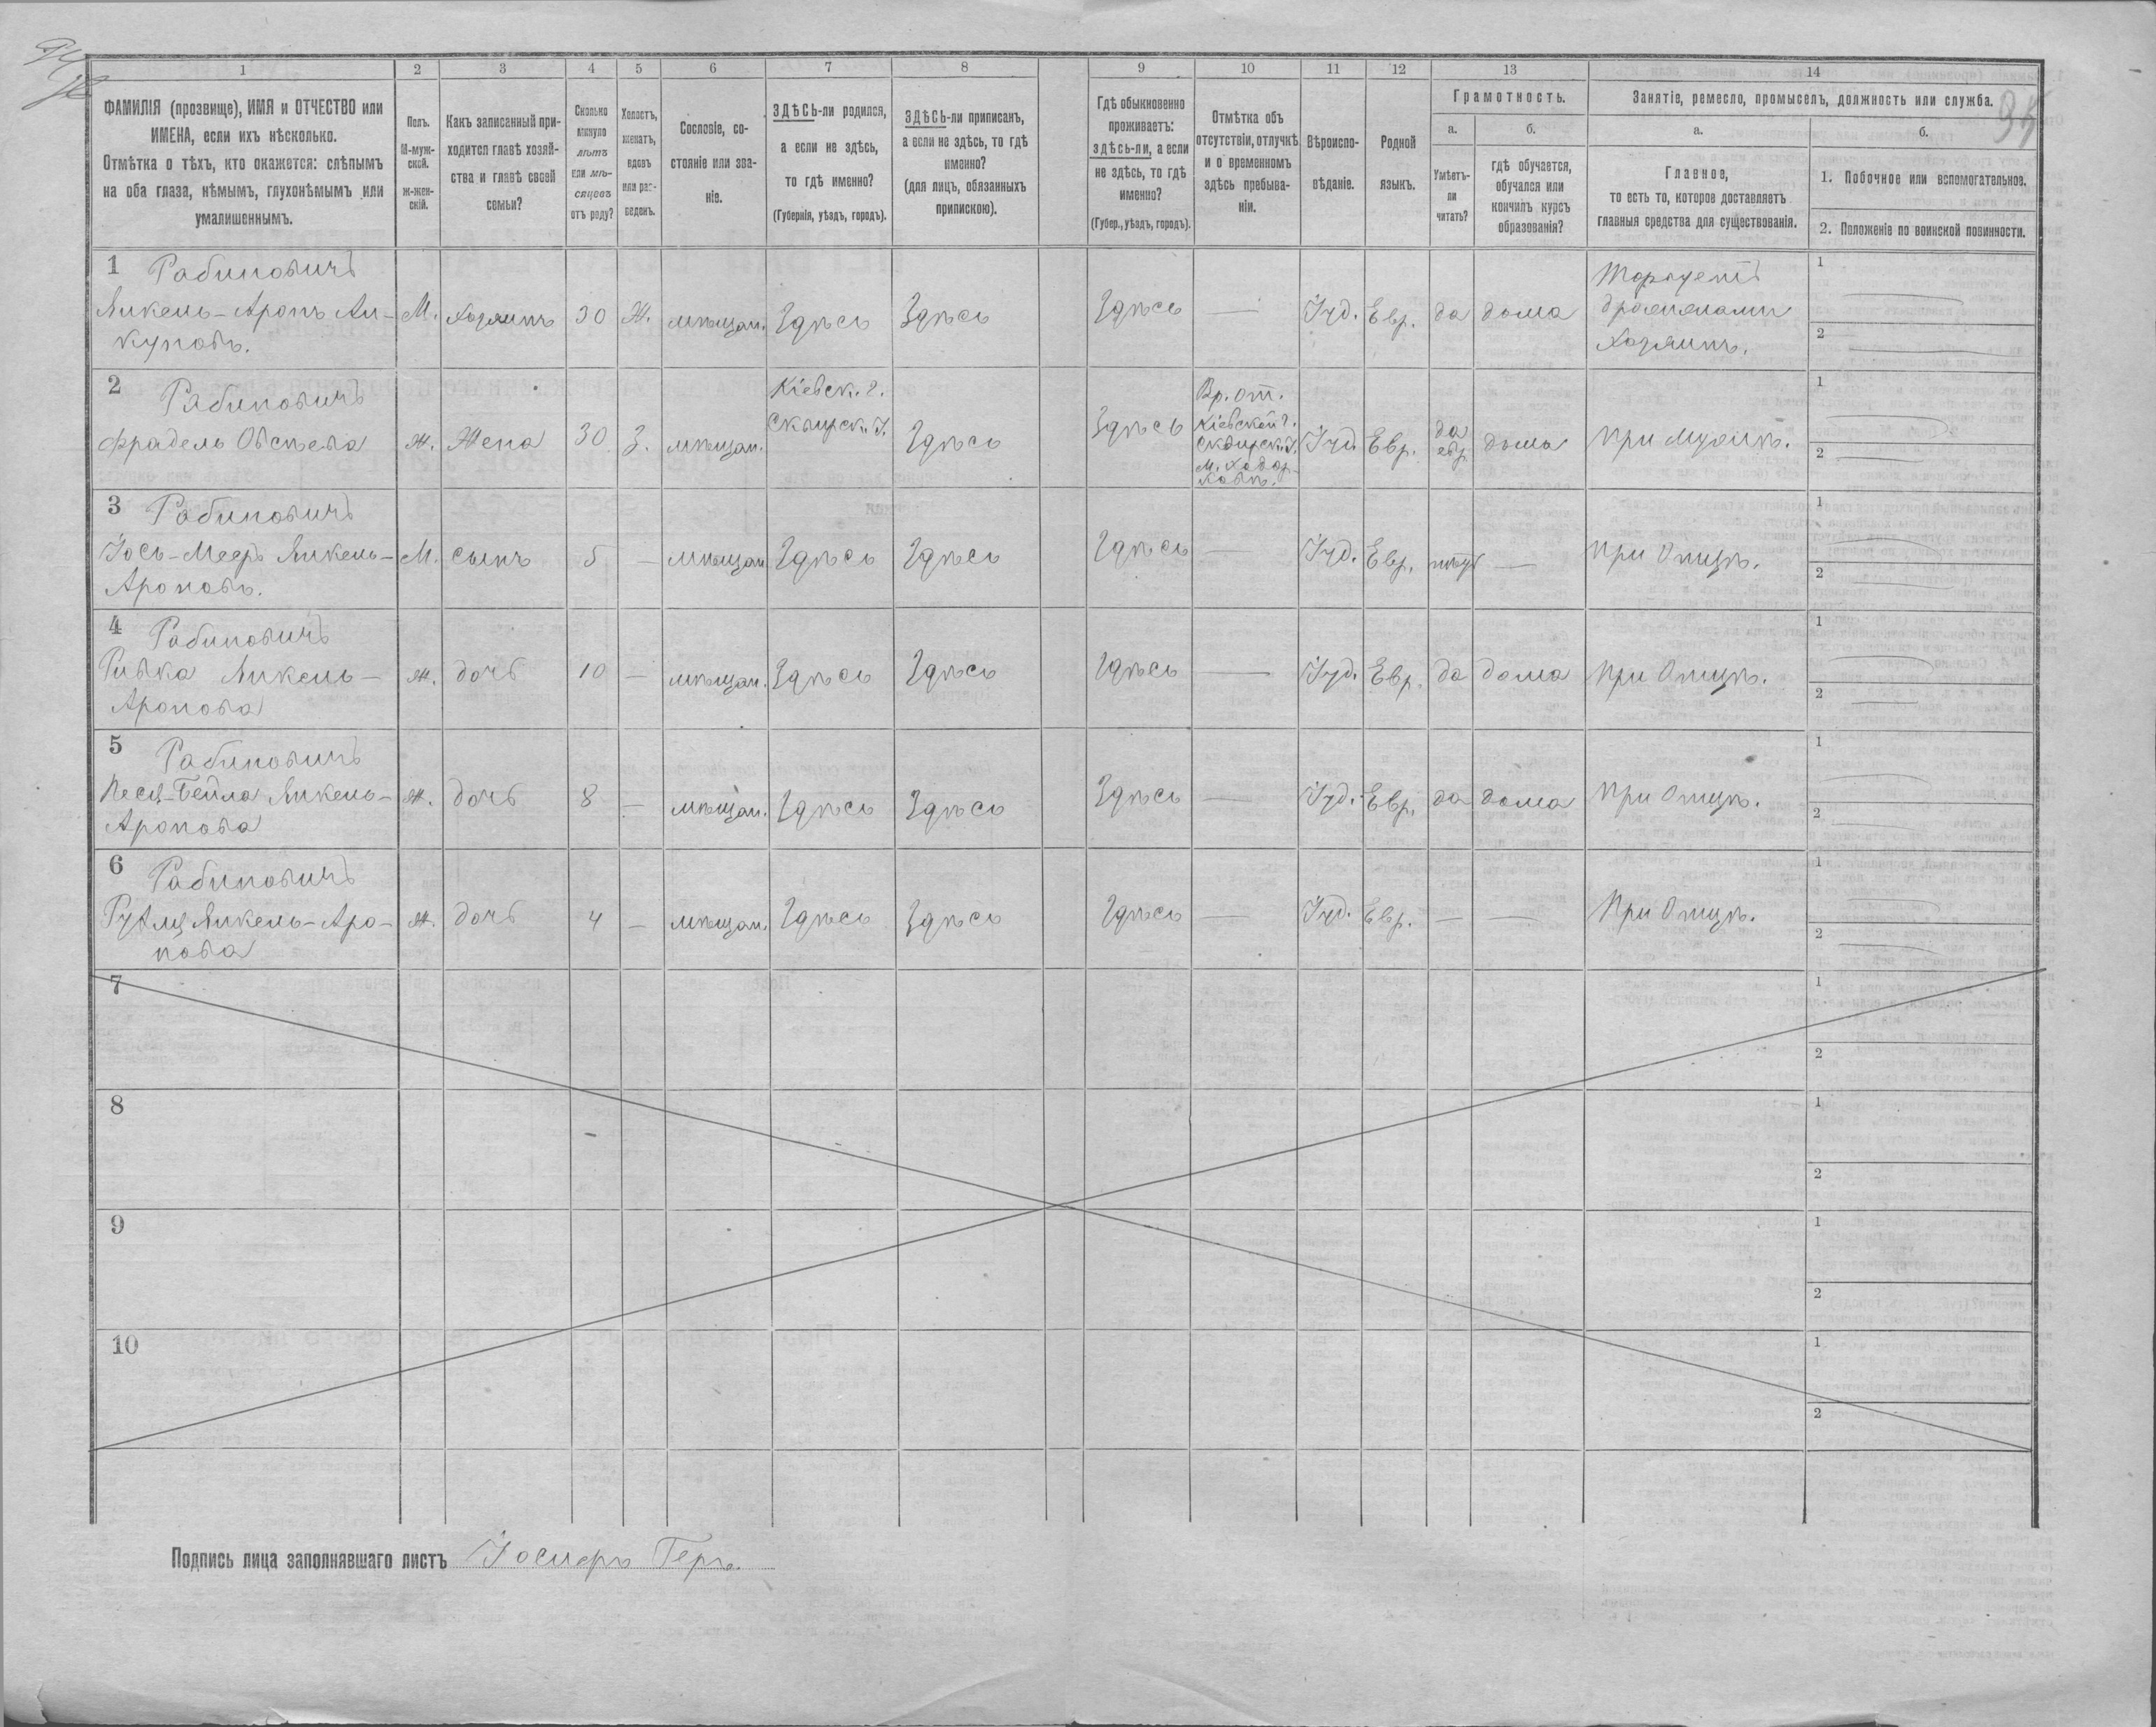 1 2 3 4 5 6 7 8 9 10 11 12 13 14
ФАМИЛІЯ (прозвище), ИМЯ и ОТЧЕСТВО или
ИМЕНА, если ихъ нѣсколько.
Отмѣтка о тѣхъ, кто окажется: слѣпымъ
на оба глаза, нѣмымъ, глухонѣмымъ или
умалишеннымъ.
Полъ.
М-муж-
ской.
Ж-жен-
скій.
Какъ записанный при-
ходится главѣ хозяй-
ства и главѣ своей
семьи?
Сколько
минуло
лѣтъ
или мѣ-
сяцевъ
отъ роду?
Холостъ,
женатъ,
вдовъ
или раз-
веденъ.
Сословіе, со-
стояніе или зва-
ніе.
ЗДѢСЬ-ли родился,
а если не здѣсь,
то гдѣ именно?
(Губернія, уѣздъ, городъ).
ЗДѢСЬ-ли приписанъ,
а если не здѣсь, то гдѣ
именно?
(для лицъ, обязанныхъ
припискою).
Гдѣ обыкновенно
проживаетъ:
здѣсь-ли, а если
не здѣсь, то гдѣ
именно?
(Губер., уѣздъ, городъ).
Отмѣтка объ
отсутствіи, отлучкѣ
и о временномъ
здѣсь пребыва-
ніи.
Вѣроиспо-
вѣданіе.
Родной
языкъ.
Грамотность.
а.
Умѣетъ-
ли
читать?
б.
гдѣ обучается,
обучался или
кончилъ курсъ
образованія?
Занятіе, ремесло, промыселъ, должность или служба.
а.
Главное,
то есть то, которое доставляетъ
главныя средства для существованія.
б.
1. Побочное или вспомогательное.
2. Положеніе по воинской повинности.
1 Рабиновичъ
Янкель-Аронъ Ян-
куновъ.
М. Хозяинъ 30 Ж. мѣщан. Здѣсь Здѣсь Здѣсь — Іуд. Евр. да дома
Торгуетъ
Хозяинъ.
1
2
2 Рабиновичъ
Фрадель Овсѣева
ж. Жена 30 З. мѣщан.
Кіевск. г.
Сквирск. у.
Здѣсь Здѣсь
Вр. от.
Кіевской г.
Сквирск. у.
м. Ходор-
ковѣ.
Іуд. Евр.
да
евр.
дома при мужѣ.
1
2
3 Рабиновичъ
Іось-Мееръ Янкель-
Ароновъ.
М. сынъ 5 — мѣщан. Здѣсь Здѣсь Здѣсь — Іуд. Евр. нѣтъ — при Отцѣ.
1
2
4 Рабиновичъ
Ривка Янкель-
Аронова
ж. дочь 10 — мѣщан. Здѣсь Здѣсь Здѣсь — Іуд. Евр. да дома при Отцѣ.
1
2
5 Рабиновичъ
Песя-Бейла Янкель-
Аронова
ж. дочь 8 — мѣщан. Здѣсь Здѣсь Здѣсь — Іуд. Евр. да дома при Отцѣ.
1
2
6 Рабиновичъ
Янкель-Аро-
нова
ж. дочь 4 — мѣщан. Здѣсь Здѣсь Здѣсь — Іуд. Евр. — — При Отцѣ.
1
2
7
1
2
8
1
2
9
1
2
10
1
2
Подпись лица заполнявшаго листъ